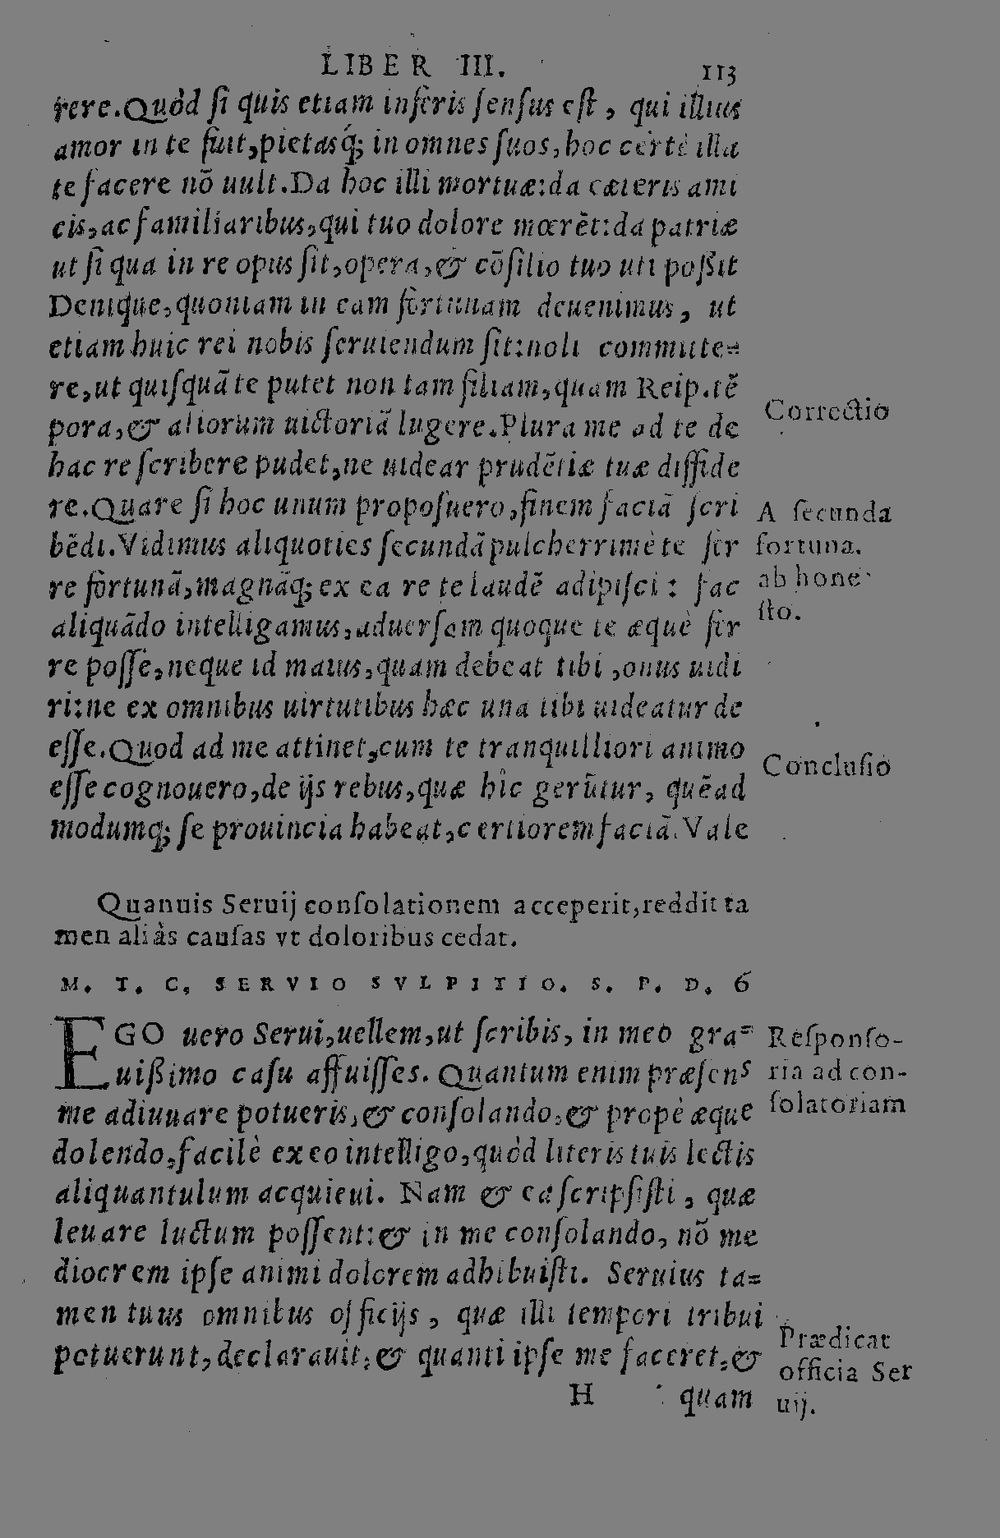 LIBER III. 113
rere.Quòd ſi quis etiam inferis ſenſus eſt, qui illius
amor in te fuit,pietasq́; in omnes ſuos,hoc certè illa
te facere nō uult.Da hoc illi mortuæ:da cæteris ami
cis,ac familiaribus,qui tuo dolore mœrēt:da patriæ
ut ſi qua in re opus ſit,opera,& cōſilio tuo uti poßit
Denique,quoniam in eam fortunam deuenimus, ut
etiam huic rei nobis ſeruiendum ſit:noli committe=
re,ut quiſquā te putet non tam filiam,quam Reip.tē
pora,& aliorum uictoriā lugere.Plura me ad te de
hac re ſcribere pudet,ne uidear prudētiæ tuæ diffide
re.Quare ſi hoc unum propoſuero,finem faciā ſcri
bēdi.Vidimus aliquoties ſecundā pulcherrimè te fer
re fortunā,magnāq; ex ea re te laudē adipiſci: fac
aliquādo intelligamus,aduerſam quoque te æquè fer
re poſſe,neque id maius,quam debeat tibi ,onus uidi
ri:ne ex omnibus uirtutibus hæc una tibi uideatur de
eſſe.Quod ad me attinet,cum te tranquilliori animo
eſſe cognouero,de ijs rebus,quæ hîc gerūtur, quēad
modumq; ſe prouincia habeat,certiorem faciā.Vale
Correctio
A ſecunda
fortuna.
ab hone
ſto.
Concluſio
Quanuis Seruij conſolationem acceperit,reddit ta
men aliàs cauſas vt doloribus cedat.
M. T. C. SERVIO SVLPITIO. S. P. D. 6
EGO uero Serui,uellem,ut ſcribis, in meo gra=
uißimo caſu affuiſſes. Quantum enim præſens
me adiuuare potueris,& conſolando,& propè æque
dolendo,facilè ex eo intelligo,quòd literis tuis lectis
aliquantulum acquieui. Nam & ea ſcripſiſti, quæ
leuare luctum poſſent:& in me conſolando, nō me
diocrem ipſe animi dolorem adhibuiſti. Seruius ta=
men tuus omnibus officijs, quæ illi tempori tribui
potuerunt,declarauit,& quanti ipſe me faceret,&
H quam
Reſponſo-
ria ad con-
ſolatoriam
Prædicat
officia Ser
uij.